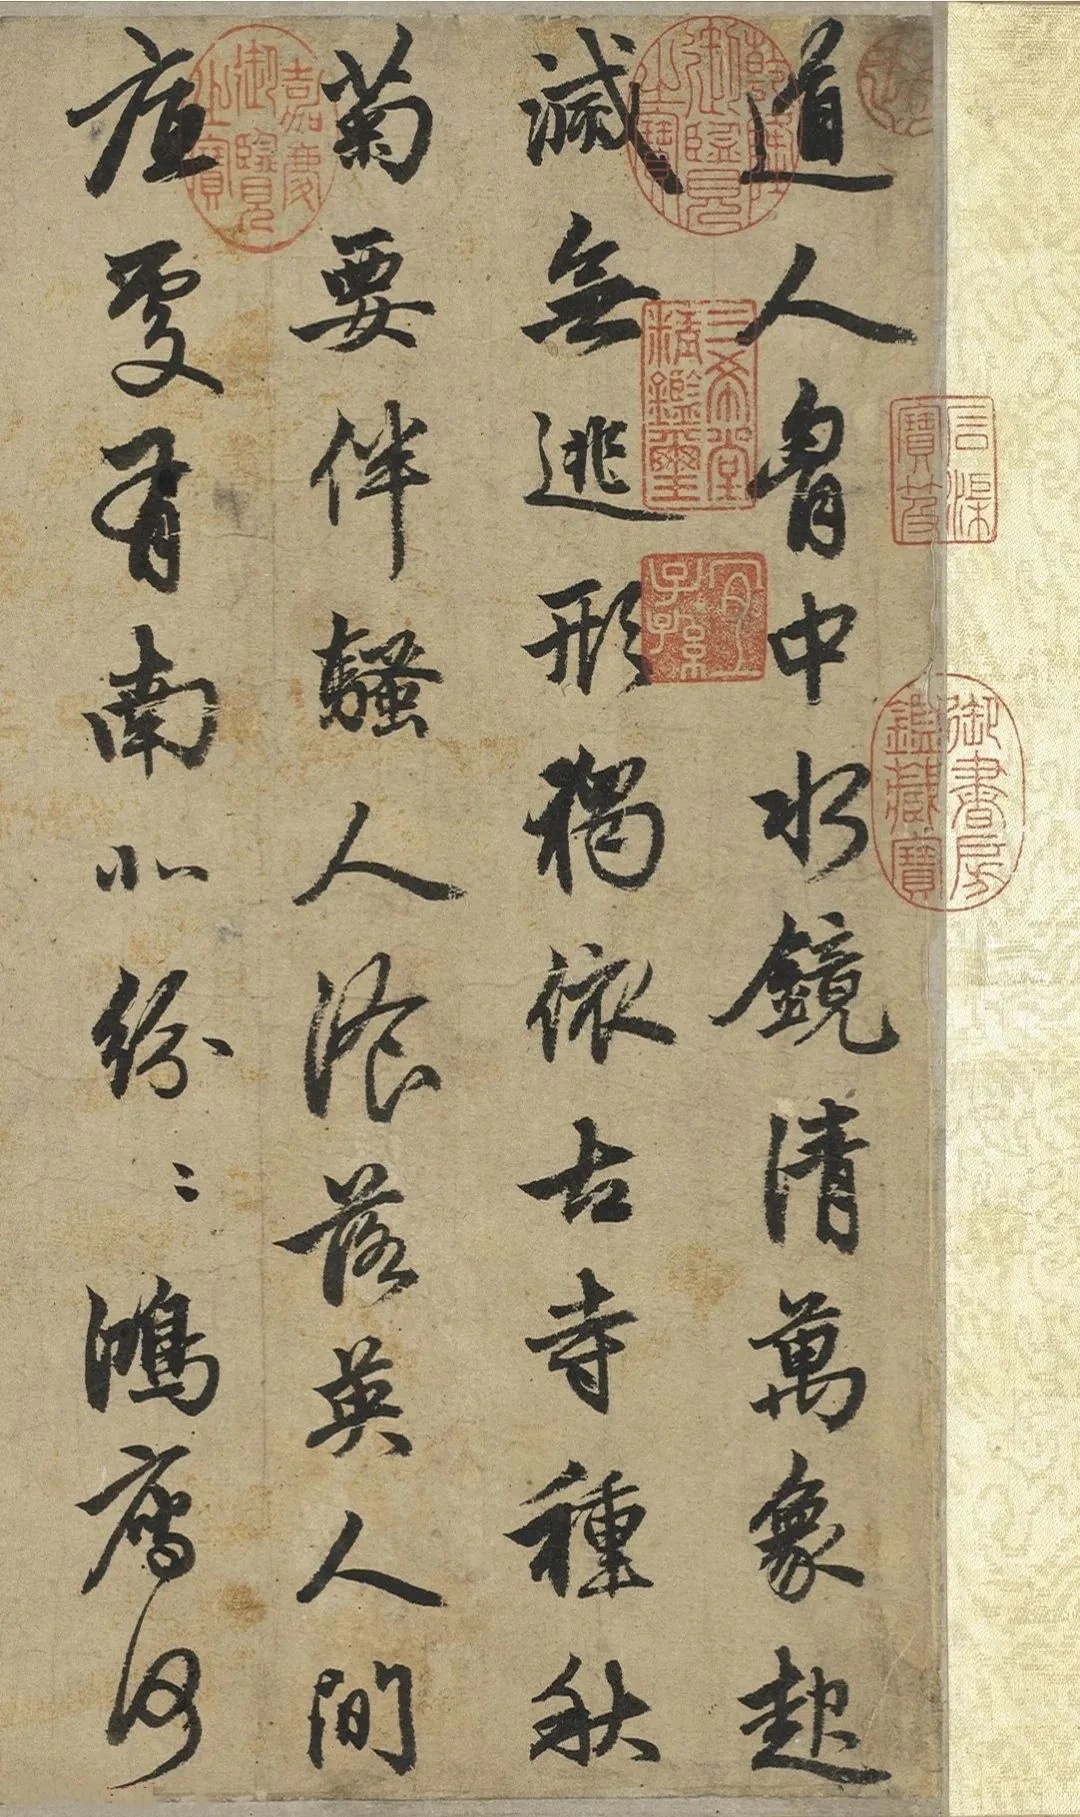 道人胷中水鏡清萬象起
滅無逃形獨依古寺種秋
菊要伴騷人湌落英人間
底處有南北紛〻鴻鴈何
乾隆御覽之寶
嘉慶御覽之寶
三希堂精鑑璽
宜子孫
御書房鑑藏寶